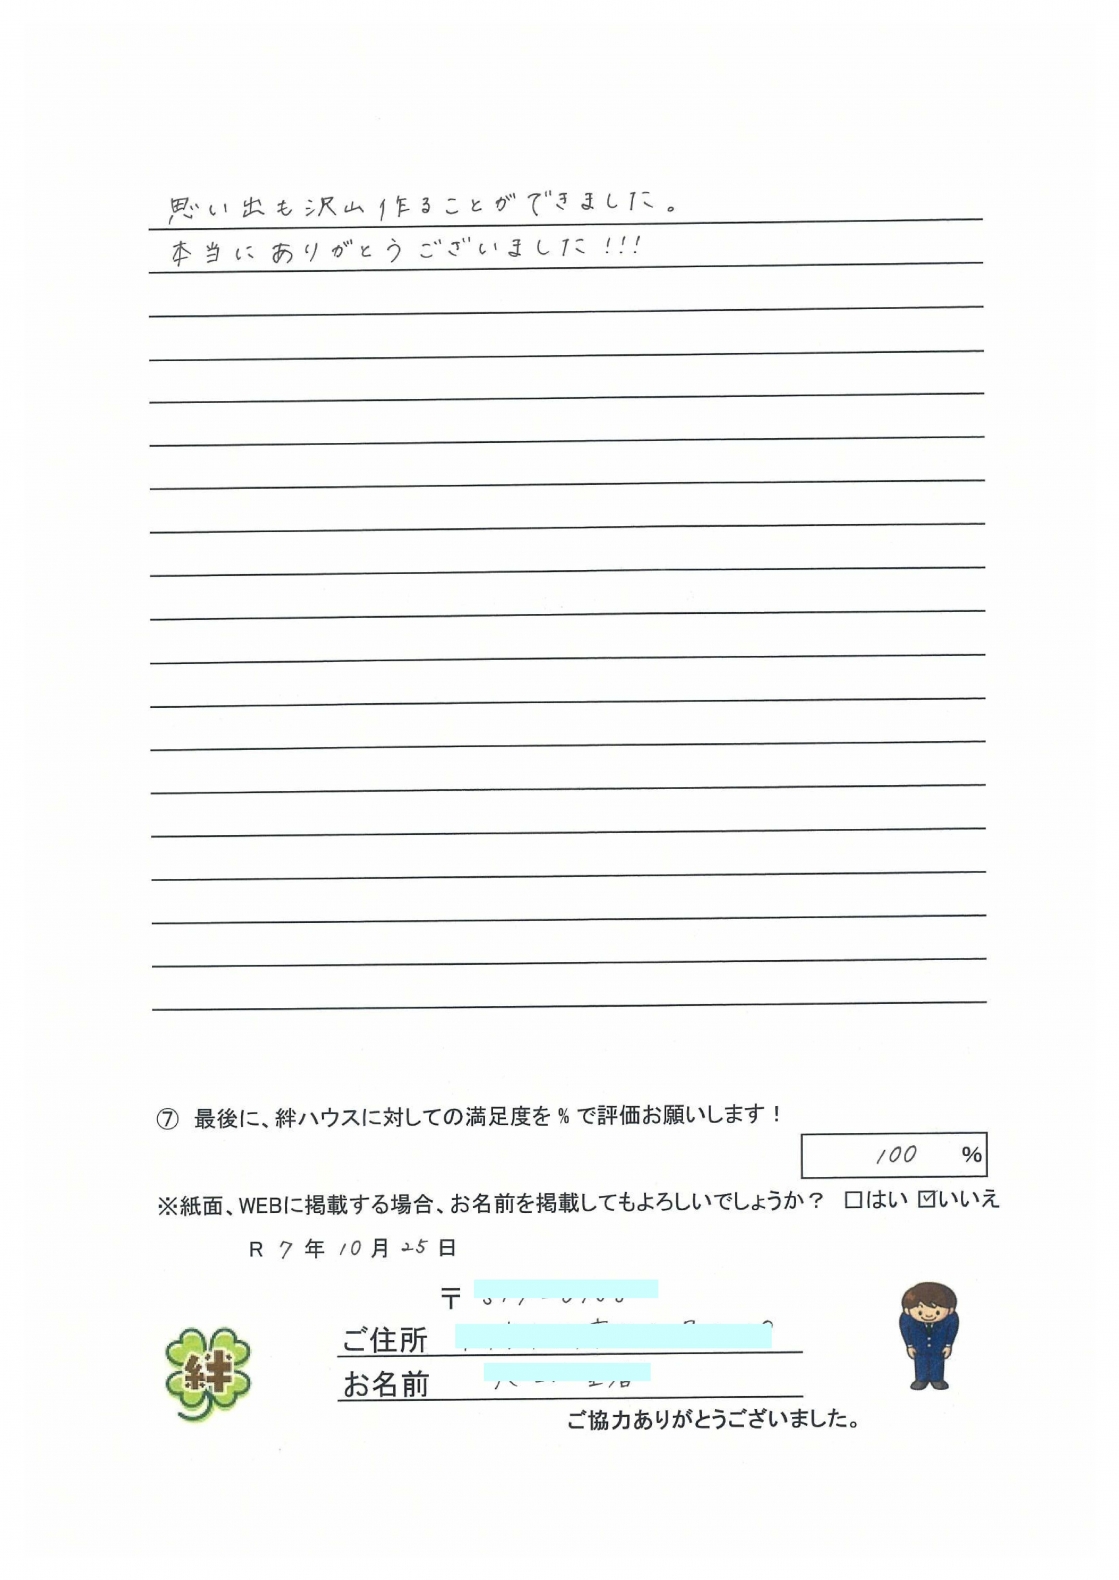 思い出も沢山作ることができました。
本当にありがとうございました!!!
⑦ 最後に、絆ハウスに対しての満足度を%で評価お願いします！
100 %
※紙面、WEBに掲載する場合、お名前を掲載してもよろしいでしょうか？ □はい ☑いいえ
R 7 年 10 月 25 日
〒
ご住所
お名前
絆
ご協力ありがとうございました。